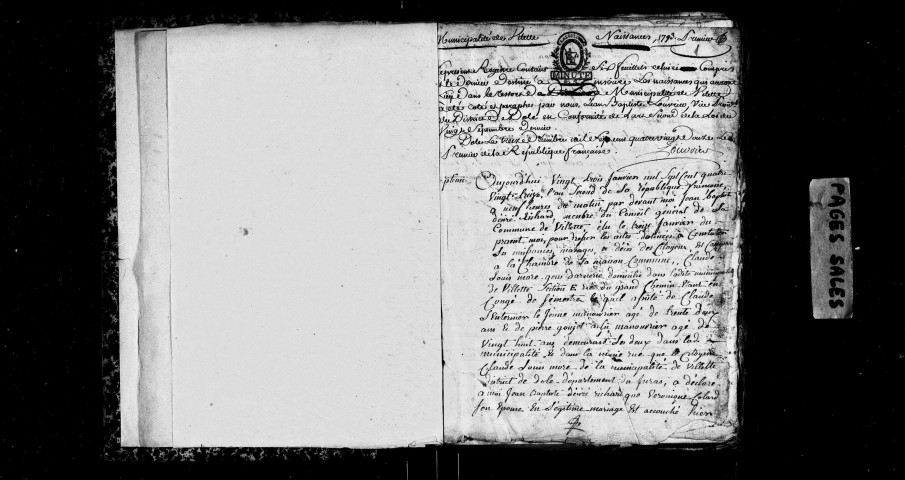 Municipalité de Vilette Naissances, 1793. Premier
1
MINUTE
présent Registre Contenant Six feuillets celui-ci Compris
et le dernier Destiné à inscrire Les naissances qui auront
Lieu dans le ressort de la Municipalité de Vilette
a été coté et paraphé par nous Jean Baptiste Louvrier, Vice
du District de Dole en Conformité de la Loi du
Vingt Septembre dernier
Dole Le Décembre mil Sept cent quatre vingt Douze Le
Premier de la République française.
Louvrier
Aujourdhui Vingt trois janvier mil Sept Cent quatre
Vingt treize l'an Second de La république
neuf heures du matin par devant moi Jean baptiste
désiré Richard, membre du Conseil général de la
Commune de Villette élu le treize Janvier du
présent mois, pour rediger les actes destinées à Constater
Les naissances, mariages, et décès des Citoyens Est Comparu
a la Chambre de La maison Commune, Claude
Louis more domicilié dans ladite municipalité
de Villette Section E rue du grand Chemin Etant en
Congé de Semestre lequel assisté de Claude
le Jeune manouvrier agé de trente deux
ans Et de pierre goujet aussi manouvrier agé de
Vingt huit ans demeurant Les deux dans ladite
municipalité Et dans la même rue que le Citoyen
Claude Louis more de la municipalité de Villette
district de dole département du Jura, a déclaré
a moi Jean Baptiste désiré richard que Veronique Colard
Son épouse En Légitime mariage Est accouché hier
PAGES SALES